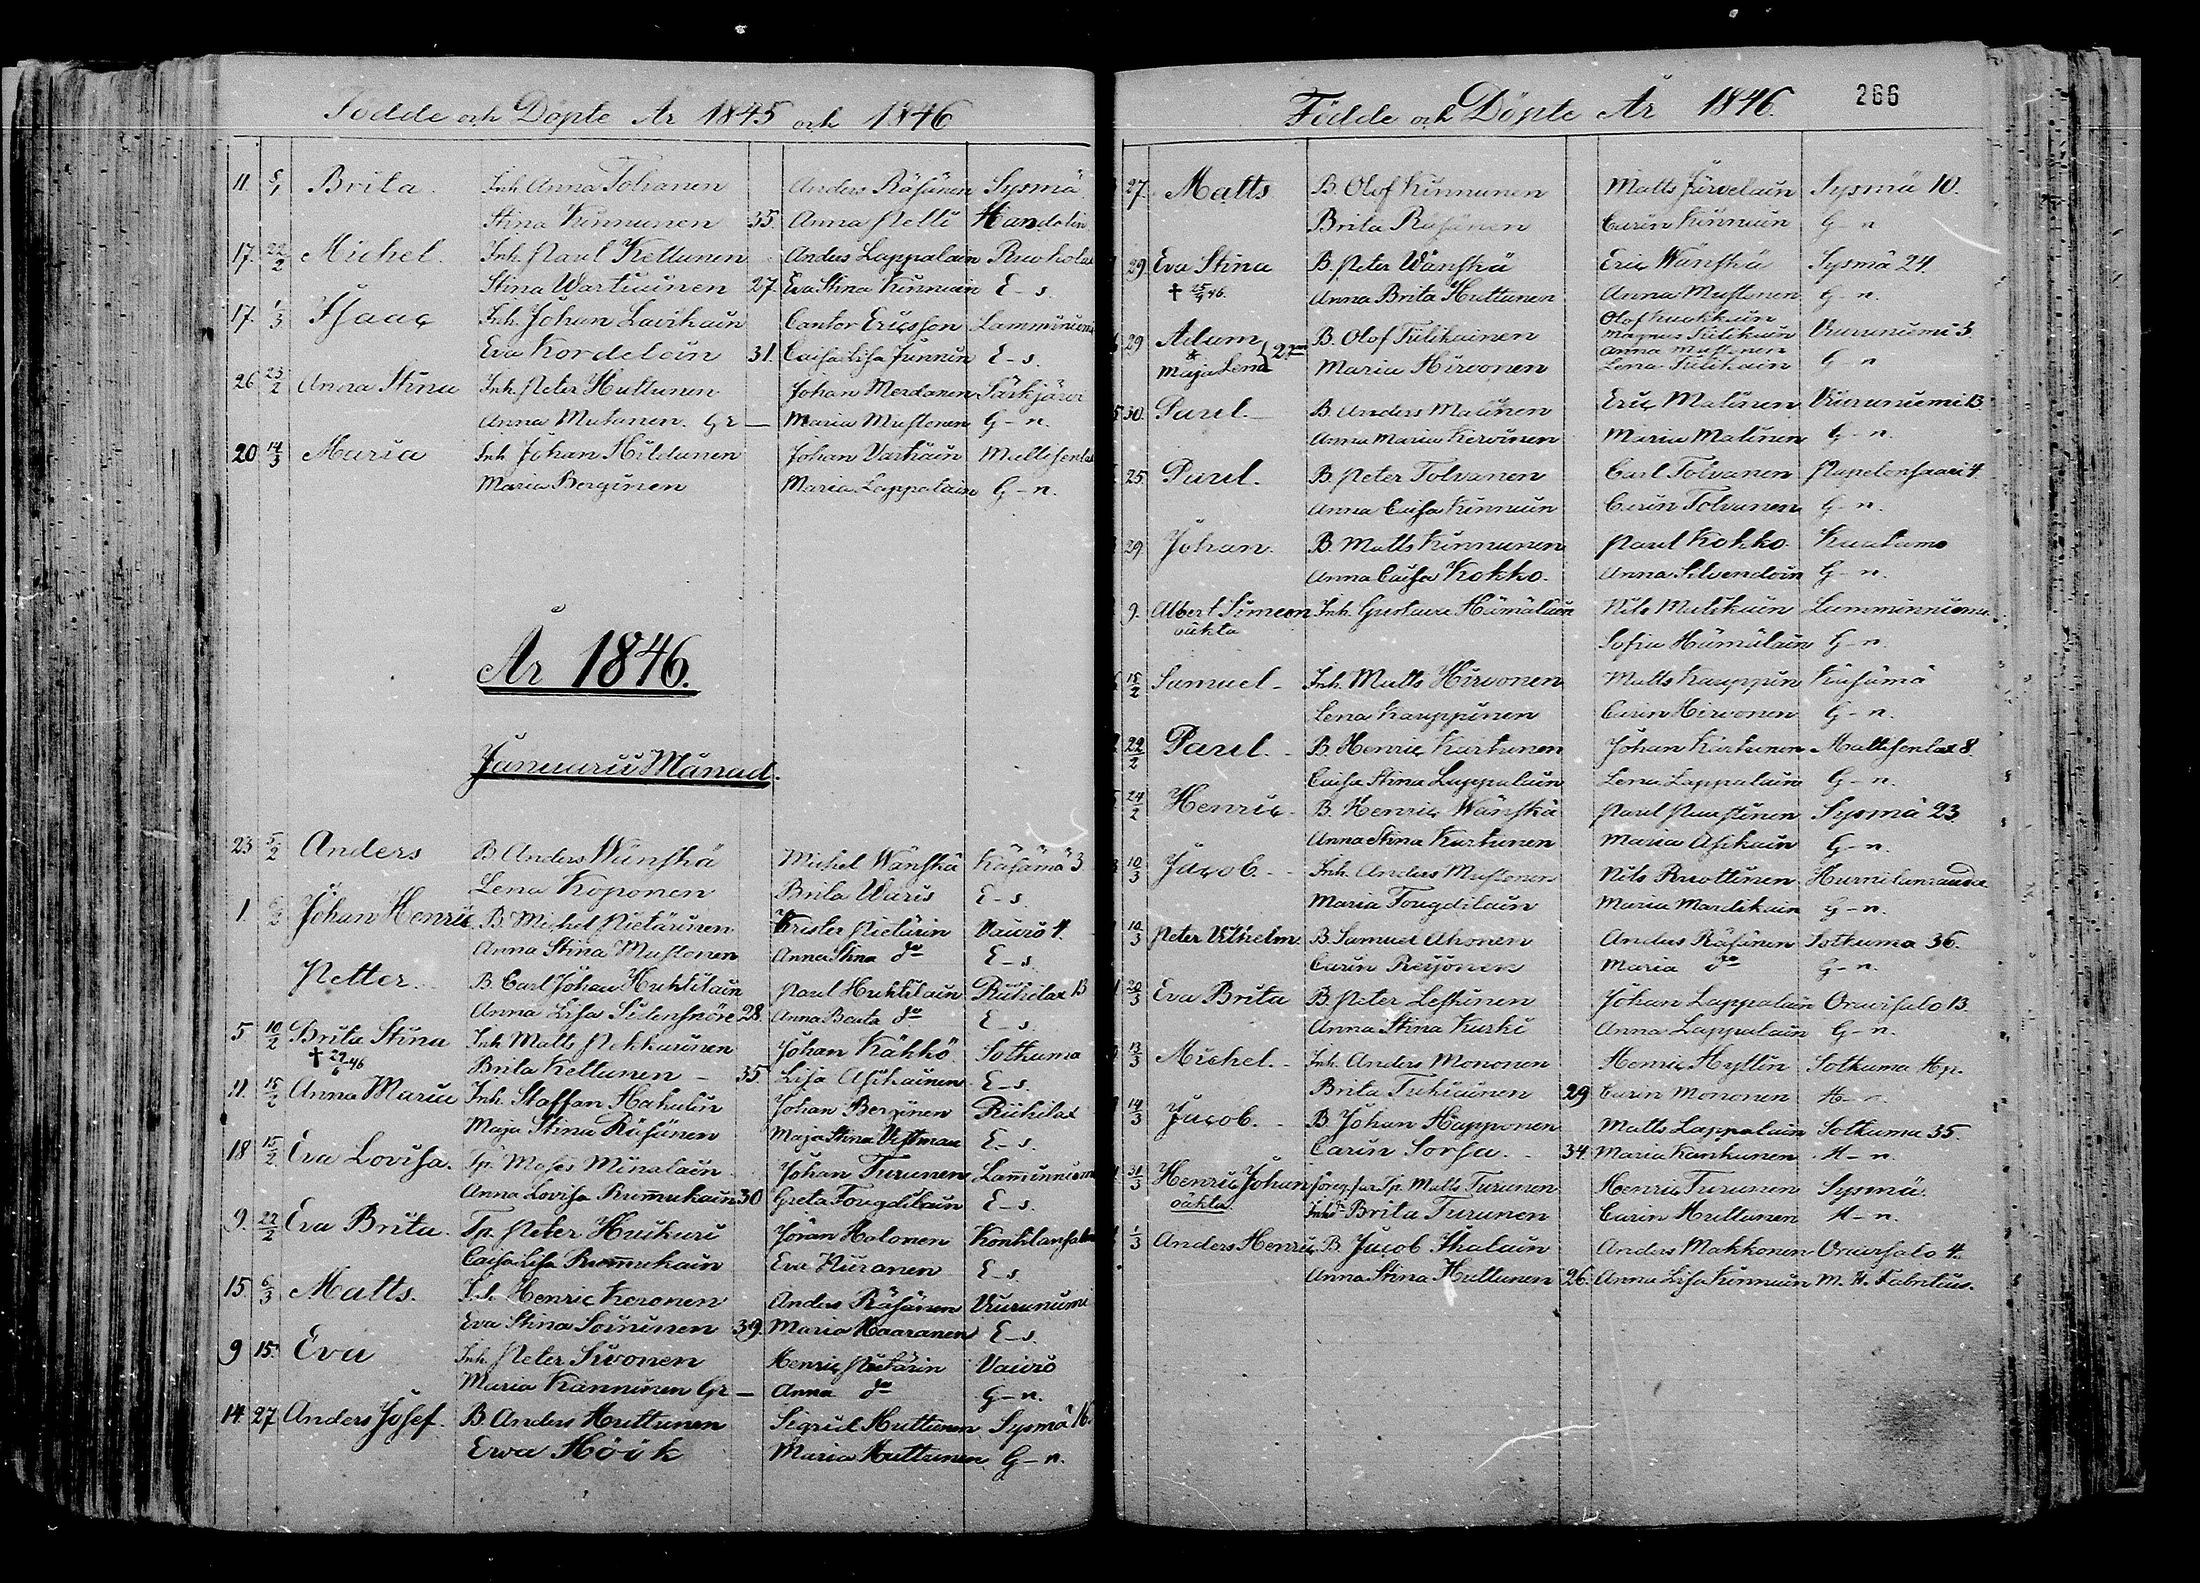 Födde och Döpte År 1845 och 1846
11. 5/1 Brita. Inh. Anna Tolvanen Anders Räsänen Sysmä
Stina Kinnunen 35. Anna Pelli Handolin
17. 22/2 Michel. Inh. Paul Kettunen Anders Lappalain Ruokolax
Stina Wartiainen 27. Eva Stina Kinnuin E-s.
17. 1/3 Isaac Inh. Johan Lavikain Cantor Ericsson Lamminniemi
Eva Kordeloin 31. Caisa Lisa Junnun E-s
26 23/2 Anna Stina Inh. Peter Huttunen Johan Merdanen Särkjärvi
Anna Mutanen. Gr — Maria Mustonen G-n.
20 14/3 Maria Inh. Johan Hildunen Johan Varkain Mattisenlax
Maria Berginen Maria Lappalain G-n.
År 1846.
Januarii Månad.
23 5/2 Anders B. Anders Wänskä Michel Wänskä Käsämä 3
Lena Koponen Brita Waris E-s.
1. Johan Henric B. Michel Pietärinen Krister Pietärin Vaivio 4.
Anna Stina Mustonen Anna Stina do E-s.
Petter. B. Carl Johan Huhtilain Paul Huhtilain Riihilax 13
Anna Lisa Sidensnöre 28. Anna Beata do E-s.
5 10/2 Brita Stina Inh. Matts Pekkarinen Johan Kähkö Sotkuma
† 29/6 46 Brita Kettunen – 35. Lisa Asikainen E-s.
11. 15/2 Anna Maria Inh. Staffan Hakulin Johan Berginen Riihilax
Maja Stina Räsänen Maja Stina Vestman E-s.
18 15/2 Eva Lovisa. Tp. Moses Minalain Johan Turunen Lamminniemi
Anna Lovisa Rummukain 30 Greta Fougdilain E-s.
9. 22/2 Eva Brita. Tp. Peter Huikuri Jöran Holonen Kontilansalmi
Caisa Lisa Rummukain Eva Piiranen E-s.
15 6/3 Matts. Inh. Henric Keronen Anders Räsänen Viiruniemi
Eva Stina Sorninen 39. Maria Haaranen E-s.
9 15. Eva Inh. Peter Sivonen Henric Pietärin Vaivio
Maria Kanninen Gr — Anna do G-n.
14 27 Anders Josef. B. Anders Huttunen Sigrid Huttunen Sysmä 16.
Ewa Höök Maria Huttunen G-n.
Födde och Döpte År 1846. 266
27. Matts B. Olof Kinnunen Matts Järvelain Sysmä 10.
Brita Räsänen Carin Kinnuin G-n
29 Eva Stina B. Peter Wänskä Eric Wänskä Sysmä 24.
† 25/4 46. Anna Brita Huttunen Anna Mustonen G-n.
29 Adam B. Olof Tiilikainen Olof Kuokkain
Magnus Tiilikain Viiruniemi 3
* Maja Lena Maria Hirvonen Anna Mustonen
Lena Tiilikain G-n
30. Paul B Anders Malinen Eric Malinen Viiruniemi 13.
Anna Maria Kervinen Maria Malinen G-n.
25. Paul. B. Peter Tolvanen Carl Tolvanen Papelonsaari 4.
Anna Caisa Kinnuin Carin Tolvanen G-n.
29. Johan. B. Matts Kinnunen Paul Kokko Kuutamo
Anna Caisa Kokko. Anna Silvendoin G-n.
9. Albert Simeon Inh. Gustava Hämäläin Nils Mulikain Lamminniemi
oäkta Sofia Hämäläin G-n.
15/2 Samuel – Inh. Matts Hirvonen Matts Kauppin Käsämä
Lena Kauppinen Carin Hirvonen G-n.
22/2 Paul. – B. Henric Karhunen Johan Karhunen Mattisenlax 8.
Caisa Stina Lappalain Lena Lappalain G-n.
24/2 Henric. B. Henric Wänskä Paul Puustinen Sysmä 23
Anna Stina Karhunen Maria Asikain G-n.
10/3 Jacob. – Inh. Anders Mustonen Nils Ruottinen Hurnilanranda
Maria Fougdilain Maria Mardikain G-n.
10/3 Peter Vilhelm. B. Samuel Ahonen Anders Räsänen Sotkuma 36.
Carin Reijonen Maria do G-n.
20/3 Eva Brita B. Peter Leskinen Johan Lappalain Oravisalo 13.
Anna Stina Kurki Anna Lappalain G-n.
13/3 Michel. – Inh. Anders Mononen Henric Hyttin Sotkuma Hp.
Brita Tukiainen 29 Carin Mononen H-n.
14/3 Jacob. – B. Johan Happonen Matts Lappalain Sotkuma 35.
Carin Sorsa. – 34. Maria Karhunen H-n.
31/3 Henric Johan Tp. Matts Turunen Henric Turunen Sysmä
oäkta. Brita Turunen Carin Huttunen H-n.
1/3 Anders Henric B. Jacob Ihalain Anders Makkonen Oravisalo 4.
Anna Stina Huttunen 26. Anna Lisa Kinnuin M. H. Fabritius.